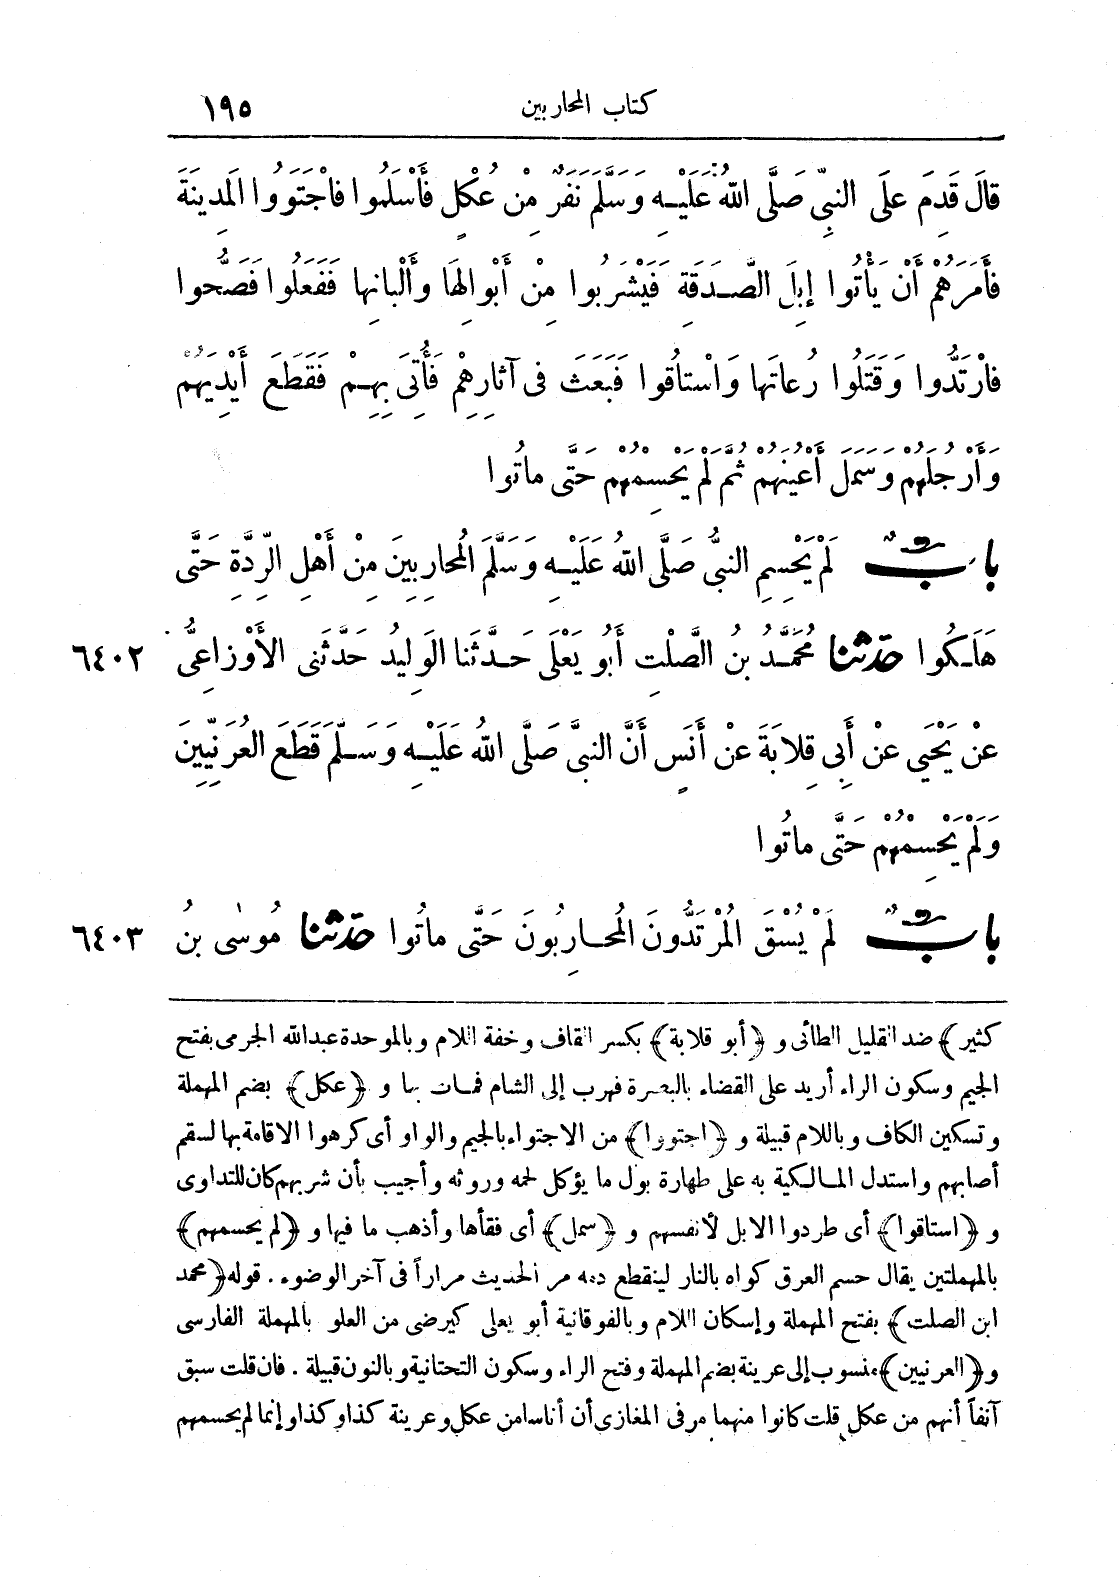 كتاب المحاربين ١٩٥
قالَ قَدِمَ علَى النبيِّ صَلَّى اللهُ عَلَيْـهِ وَسَلَّمَ نَفَرٌ مِنْ عُكْلٍ فَأَسْلَمُوا فاجْتَوَوُا المَدِينَةَ
فأَمَرَهُمْ أنْ يَأْتُوا إبِلَ الصَّـدَقَةِ فَيَشْرَبُوا مِنْ أبْوالِهَا وألْبانِها فَفَعَلُوا فَصَحُّوا
فارْتَدُّوا وَقَتَلُوا رُعاتَها وَاسْتاقُوا فَبَعَثَ فى آثارِهِمْ فَأُتِىَ بِهِـمْ فَقَطَعَ أيْدِيَهُمْ
وَأرْجُلَهُمْ وَسَمَلَ أعْيُنَهُمْ ثُمَّ لَمْ يَحْسِمْهُمْ حَتَّى ماتُوا
بابٌ لَمْ يَحْسِمِ النبيُّ صَلَّى اللهُ عَلَيْـهِ وَسَلَّمَ المُحارِبِينَ مِنْ أهْلِ الرِّدَّةِ حَتَّى
هَلَـكُوا حَدَّثَنَا مُحَمَّـدُ بنُ الصَّلْتِ أبُو يَعْلَى حَـدَّثَنا الوَلِيدُ حَدَّثَنى الأَوْزاعِىُّ ٦٤٠٢
عنْ يَحْيَى عنْ أبِى قِلابَةَ عنْ أنَسٍ أنَّ النبيَّ صَلَّى اللهُ عَلَيْـهِ وَسَـلَّمَ قَطَعَ العُرَنِيِّينَ
وَلَمْ يَحْسِمْهُمْ حَتَّى ماتُوا
بابٌ لَمْ يُسْقَ المُرْتَدُّونَ المُحـارِبُونَ حَتَّى ماتُوا حَدَّثَنَا مُوسَى بنُ ٦٤٠٣
كثير﴾ ضد القليل الطائى و ﴿أبو قلابة﴾ بكسر القاف وخفة اللام وبالموحدة عبدالله الجرمى بفتح
الجيم وسكون الراء أريد على القضاء بالبصرة فهرب إلى الشام فمـات بها و ﴿عكل﴾ بضم المهملة
وتسكين الكاف وباللام قبيلة و ﴿اجتووا﴾ من الاجتواء بالجيم والواو أى كرهوا الاقامة بها لسقم
أصابهم واستدل المـالـكية به على طهارة بول ما يؤكل لحمه وروثه وأجيب بأن شربهم كان للتداوى
و ﴿استاقوا﴾ أى طردوا الابل لأنفسهم و ﴿سمل﴾ أى فقأها وأذهب ما فيها و ﴿لم يحسمهم﴾
بالمهملتين يقال حسم العرق كواه بالنار لينقطع دمه مر الحديث مراراً فى آخر الوضوء . قوله ﴿محمد
ابن الصلت﴾ بفتح المهملة وإسكان اللام وبالفوقانية أبو يعلى كيرضى من العلو بالمهملة الفارسى
و﴿العرنيين﴾ منسوب إلى عرينة بضم المهملة وفتح الراء وسكون التحتانية وبالنون قبيلة . فان قلت سبق
آنفاً أنهم من عكل قلت كانوا منهما مر فى المغازى أن أناسا من عكل وعرينة كذا وكذا وإنما لم يحسمهم